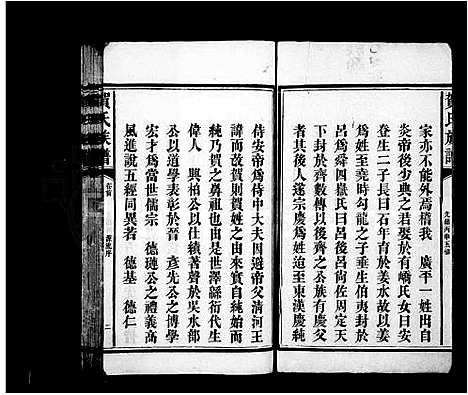 賀氏族譜
光緒丙申五修
家亦不能外焉稽我　廣平一姓出自
炎帝後少典之君娶於有嶠氏女曰安
登生二子長曰石年育於姜水故以姜
爲姓至堯時勾龍之子垂生伯夷封於
呂爲舜四嶽氏曰呂尚佐周定天
下封於齊以後齊之公族有慶父
者後人遂宗慶爲姓迨至東漢慶純
侍安帝爲侍中大夫因避帝父清河王
諱而改賀則賀姓之由來實自純始而
純乃賀之鼻祖也由是世澤縣衍代生
偉人　興柏公以仕績著聲於吳水部
公以道學表彰於晉　彥先公之博學
宏才爲當世儒宗　德璉公之禮義高
風進說五經同異著　德基　德仁
賀氏族譜
卷首
源流序
二